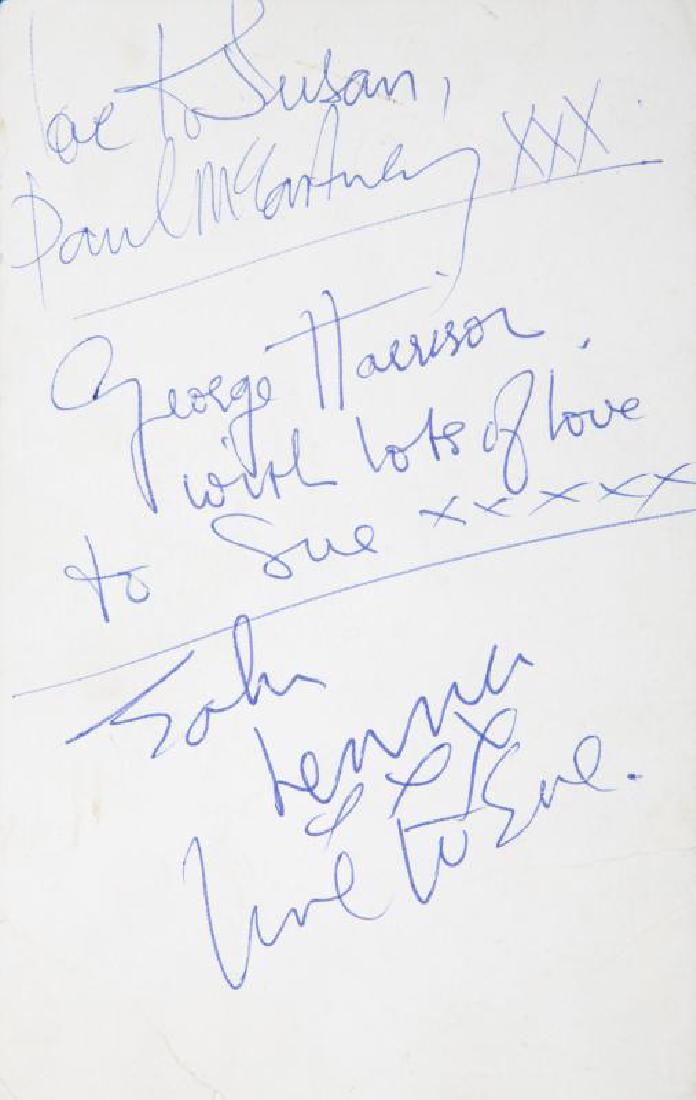 love to Susan,
Paul McCartney XXX.
George Harrison.
with lots of love
to Sue xxxxxx
John
Lennon
xxx
love to Sue.